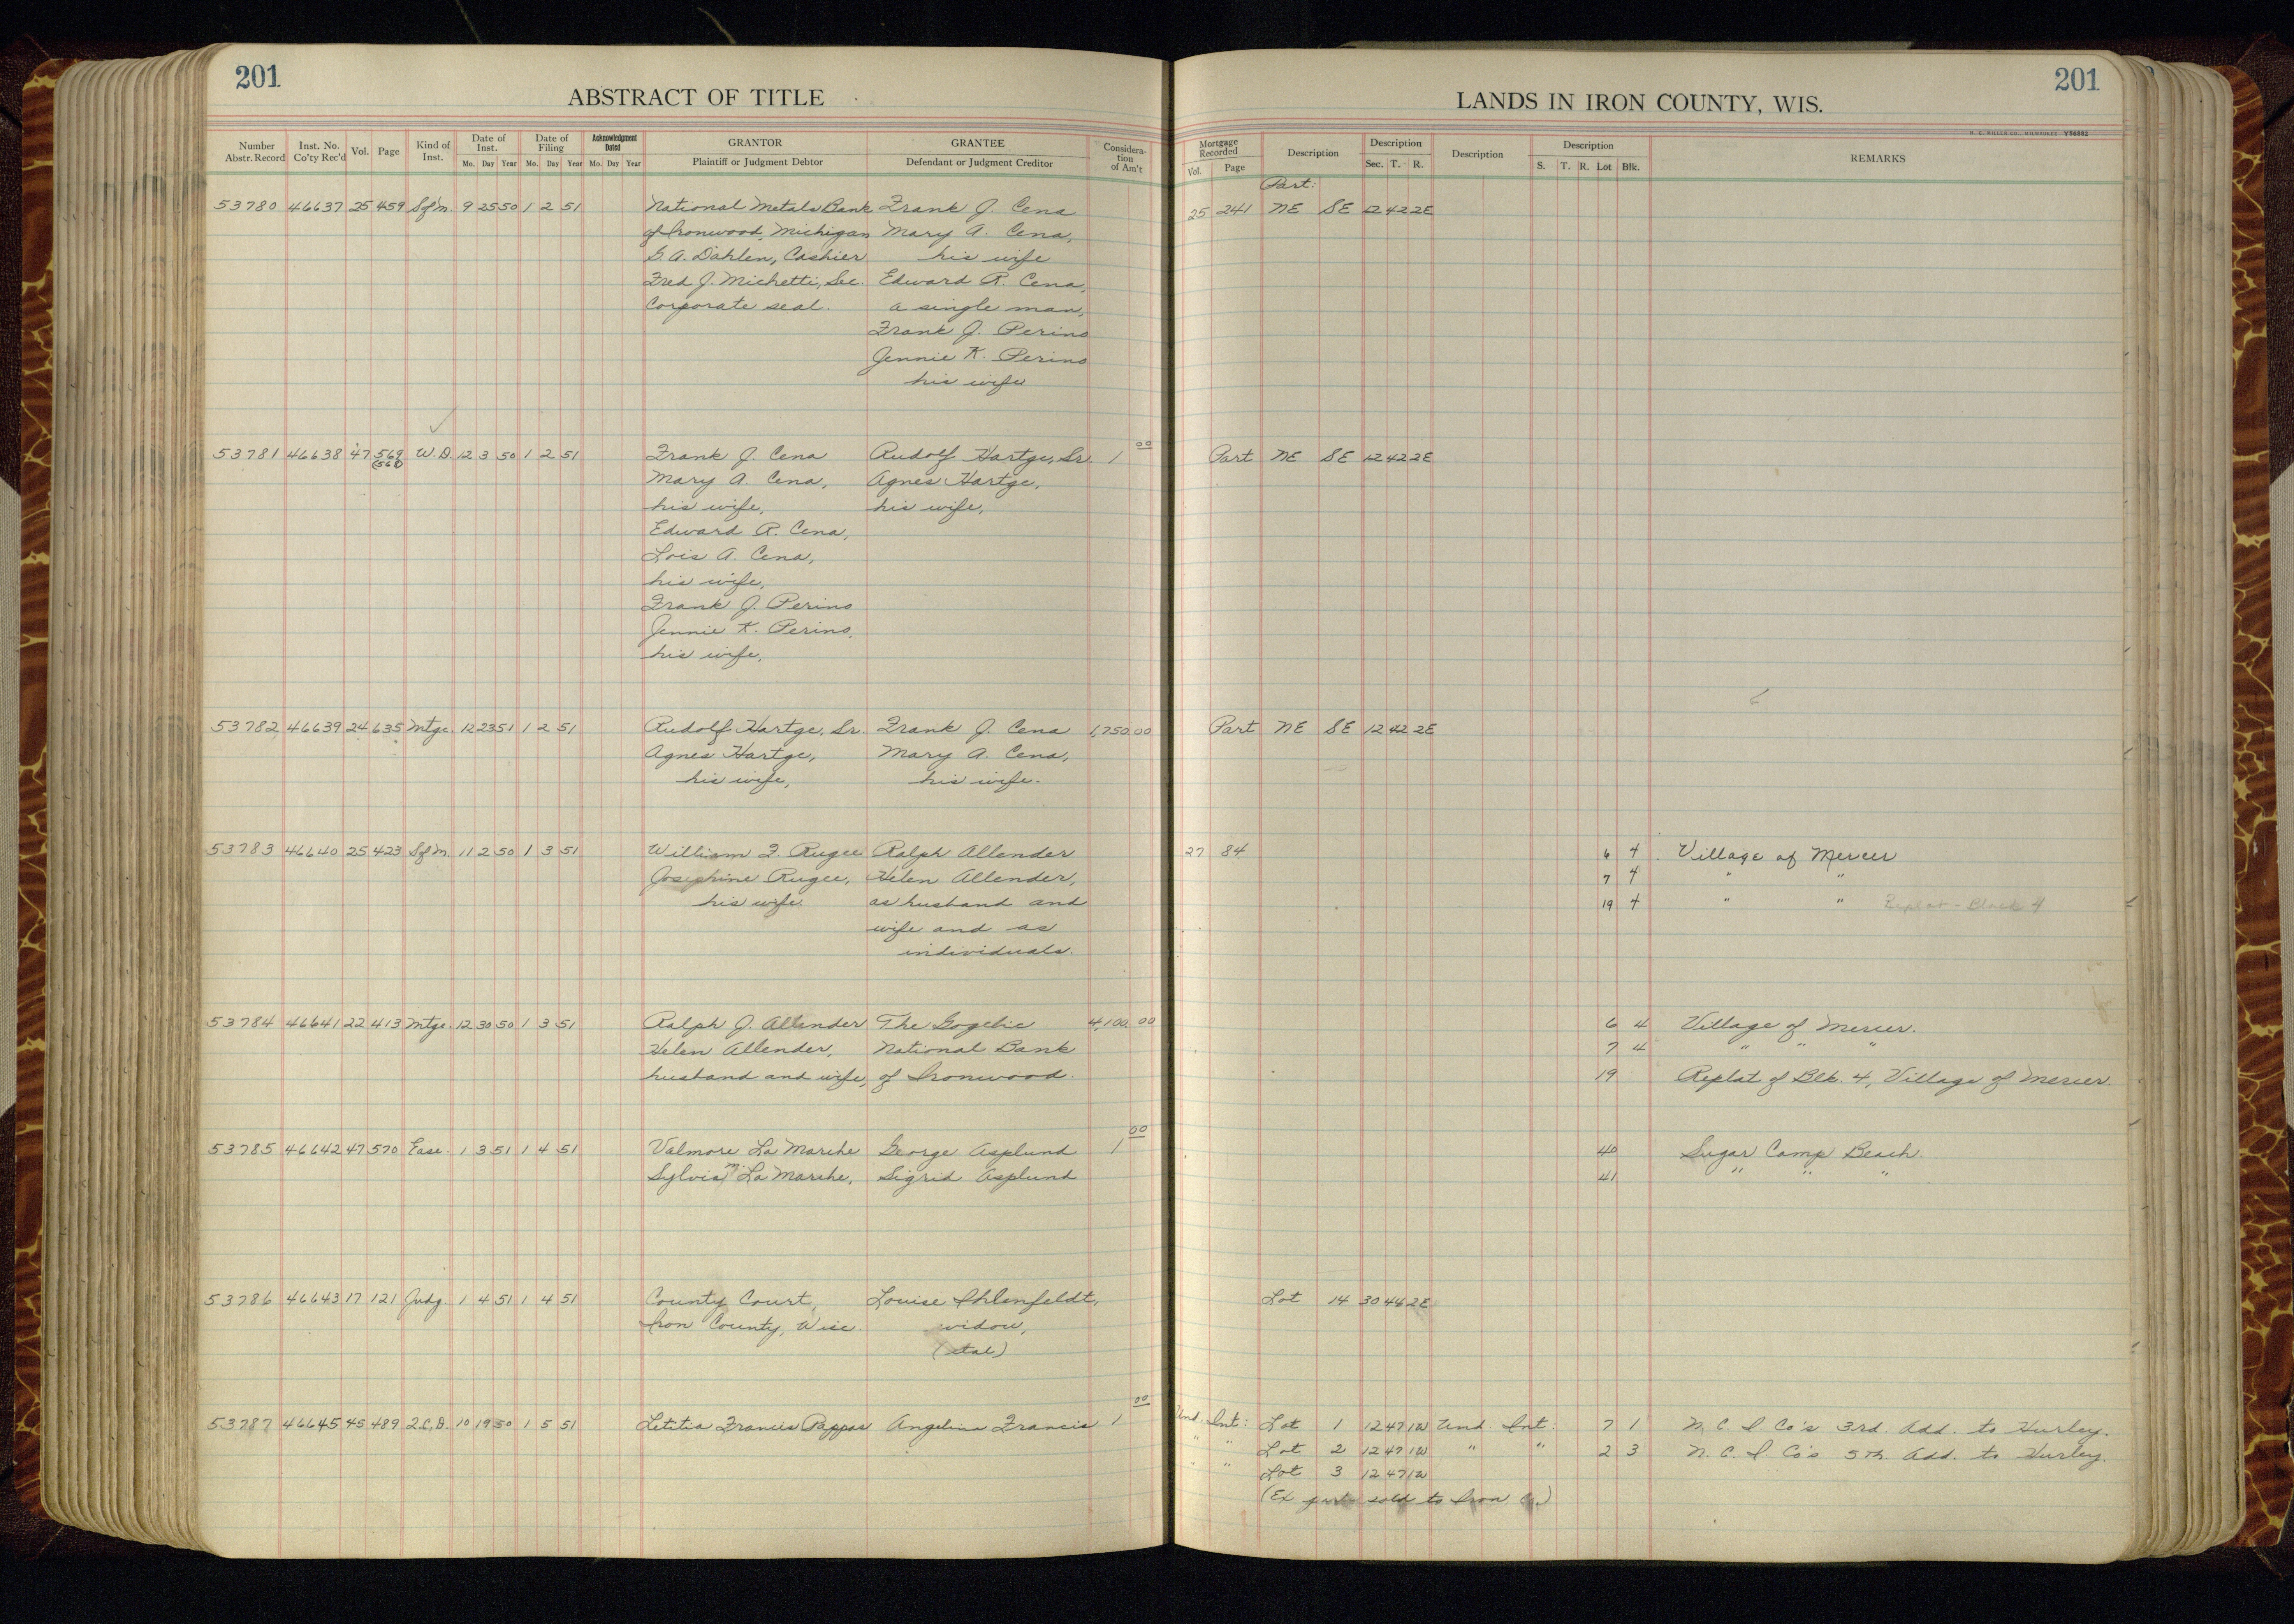 201
ABSTRACT OF TITLE
LANDS IN IRON COUNTY, WIS.
201
H. C. MILLER CO., MILWAUKEE V96882
Number Abstr. Record Inst. No. Co'ty Rec'd Vol. Page Kind of Inst. Date of Inst. Mo. Day Year Date of Filing Mo. Day Year Acknowledgment Dated Mo. Day Year GRANTOR Plaintiff or Judgment Debtor GRANTEE Defendant or Judgment Creditor Consideration of Am't
Mortgage Recorded Vol. Page Description Description Sec. T. R. Description Description S. T. R. Lot Blk. REMARKS
Part:
53780 46637 25 459 Sfm. 9 25 50 1 2 51 National Metals Bank Frank J. Cena 25 241 NE SE 12 42 2E
of Ironwood, Michigan Mary A. Cena,
G. A. Dahlen, Cashier his wife
Fred J. Michetti, Sec. Edward R. Cena,
Corporate seal. a single man,
Frank J. Perino
Jennie K. Perino
his wife
53781 46638 47 569 W.D. 12 3 50 1 2 51 Frank J. Cena Rudolf Hartge, Sr. 1 00 Part NE SE 12 42 2E
(568)
Mary A. Cena, Agnes Hartge,
his wife, his wife,
Edward R. Cena,
Lois A. Cena,
his wife,
Frank J. Perino
Jennie K. Perino,
his wife,
53782 46639 24 635 Mtge. 12 23 51 1 2 51 Rudolf Hartge, Sr. Frank J. Cena 1,750 00 Part NE SE 12 42 2E
Agnes Hartge, Mary A. Cena,
his wife, his wife.
53783 46640 25 423 Sfm. 11 2 50 1 3 51 William F. Rugee Ralph Allender 27 84 6 4 Village of Mercer
Josephine Rugee, Helen Allender, 7 4 " "
his wife. as husband and 19 4 " " Replat - Block 4
wife and as
individuals.
53784 46641 22 413 Mtge. 12 30 50 1 3 51 Ralph J. Allender The Gogebic 4,100 00 6 4 Village of Mercer.
Helen Allender, National Bank 7 4 " " "
husband and wife, of Ironwood. 19 Replat of Blk. 4, Village of Mercer
53785 46642 47 570 Ease. 1 3 51 1 4 51 Valmore La Marche George Asplund 1 00 40 Sugar Camp Beach.
Sylvia M. La Marche, Sigrid Asplund 41 " " "
53786 46643 17 121 Judg. 1 4 51 1 4 51 County Court, Louise Ihlenfeldt, Lot 14 30 44 2E
Iron County, Wisc. widow,
(etal)
53787 46645 45 489 2.C.D. 10 19 50 1 5 51 Letitia Francis Pappas Angelina Francis 1 00 Und. Int: Lot 1 12 47 1W Und. Int: 7 1 N. C. I Co's 3rd. Add. to Hurley.
" " Lot 2 12 47 1W " " 2 3 N. C. I. Co's 5th. Add. to Hurley.
" " Lot 3 12 47 1W
(Ex part sold to Iron Co.)